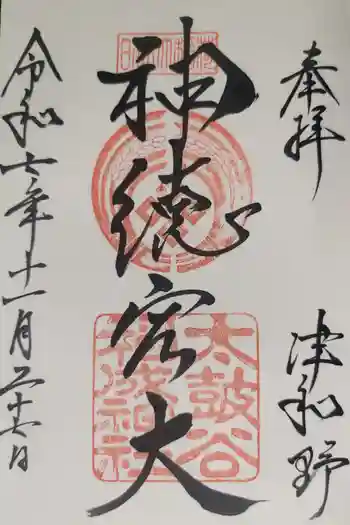 奉拝 津和野
神徳宏大
太鼓谷
稲成神社
令和六年十一月二十六日